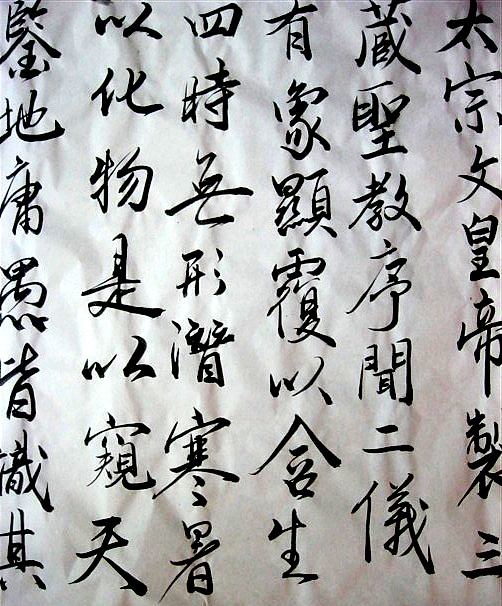 太宗文皇帝製三
藏聖教序聞二儀
有象顯覆以含生
四時無形潛寒暑
以化物是以窺天
鑒地庸愚皆識其